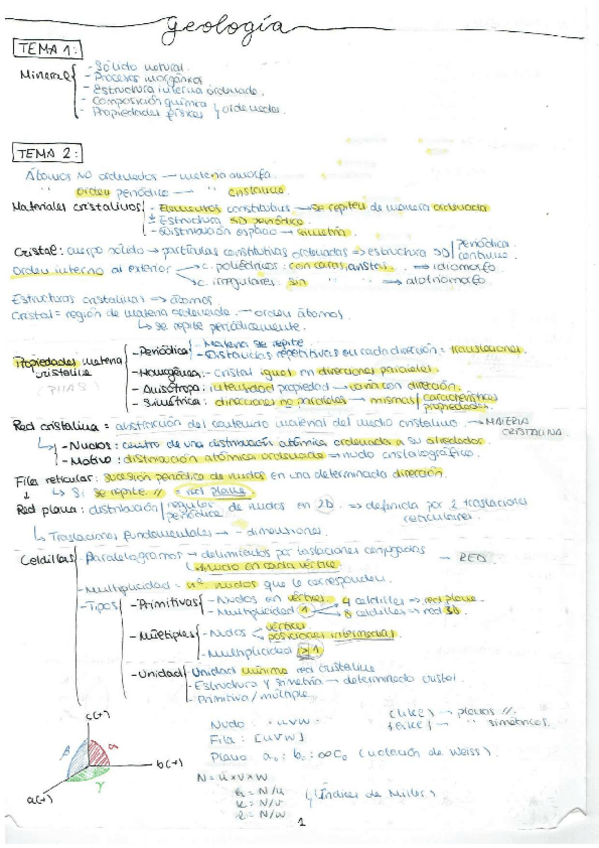 Geología
TEMA 1:
Mineral - Sólido natural
- Procesos inorgánicos
- Estructura interna ordenada
- Composición química
- Propiedades físicas y ordenadas
TEMA 2:
Átomos NO ordenados → materia amorfa.
" orden periódico → " cristalina.
Materiales cristalinos - Elementos constitutivos → se repiten de manera ordenada
- Estructura 3D periódica
- Distribución espacio → simetría.
Cristal: cuerpo sólido → partículas constitutivas ordenadas → estructura 3D periódica continua
Orden interno al exterior → c. poliédricos: con caras, aristas.. → idiomorfo
→ c. irregulares: sin " → alotriomorfo
Estructuras cristalinas → átomos.
Cristal = región de materia ordenada → orden átomos.
↳ se repite periódicamente.
Propiedades materia cristalina
(PHAS)
- Periódica - Materia se repite
- Distancias repetitivas en cada dirección = traslaciones.
- Homogénea: cristal igual en direcciones paralelas.
- Anisótropa: intensidad propiedad → varía con dirección.
- Simétrica: direcciones no paralelas → mismas características propiedades.
Red cristalina = abstracción del contenido material del medio cristalino. → MATERIA CRISTALINA.
↳ - Nudos: centro de una distribución atómica ordenada a su alrededor.
- Motivo: distribución atómica ordenada → nudo cristalográfico.
Fila reticular: sucesión periódica de nudos en una determinada dirección.
↓ ↳ Si se repite // = red plana
Red plana: distribución regular periódica de nudos en 2D. → definida por 2 traslaciones reticulares.
↳ Traslaciones fundamentales → - dimensiones.
Celdillas - Paralelogramos → delimitados por traslaciones conjugadas → RED.
↳ nudo en cada vértice
- Multiplicidad = nº nudos que le corresponden.
- Tipos - Primitivas - Nudos en vértices 4 celdillas → red plana
- Multiplicidad 1 8 celdillas → red 3D.
- Múltiples - Nudos vértices
posiciones intermedias.
- Multiplicidad > 1
- Unidad - Unidad mínima red cristalina
- Estructura y simetría → determinado cristal.
- Primitiva / múltiple.
c(+)
β α
b(+)
γ
a(+)
Nudo · uvw ·
Fila: [uvw]
Plano a₀ : b₀ : ∞c₀ (notación de Weiss).
N = u×v×w
h = N/u
k = N/v
l = N/w
(Índices de Miller)
(hkl) → planos //.
{hkl} → " simétricos.
1